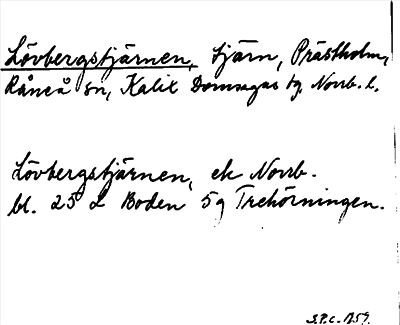 Lövbergstjärnen, tjärn, Prästholm,
Råneå sn, Kalix Domsagas tg, Norrb. l.
Lövbergstjärnen, ek Norrb.
bl. 25 L Boden 5g Trehörningen.